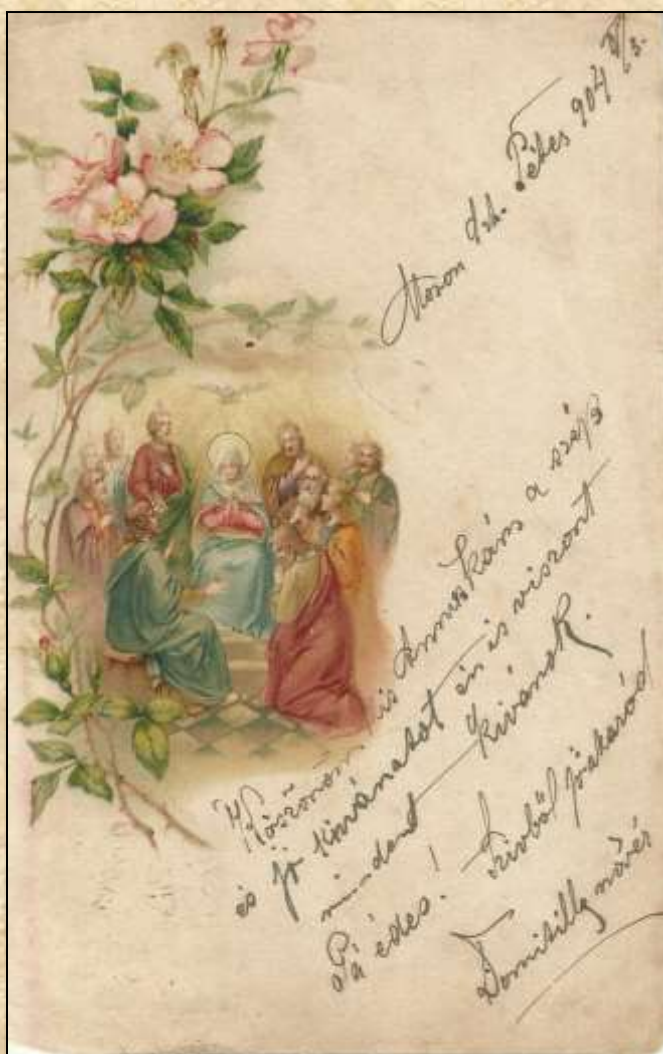 Moson Szt. Péter 904 V/3.
Köszönöm is Annuskám a szép
és jó kívánatot én is viszont
mindent kívánok.
Pá édes! Szivből jóakaród
Domitilla nővér